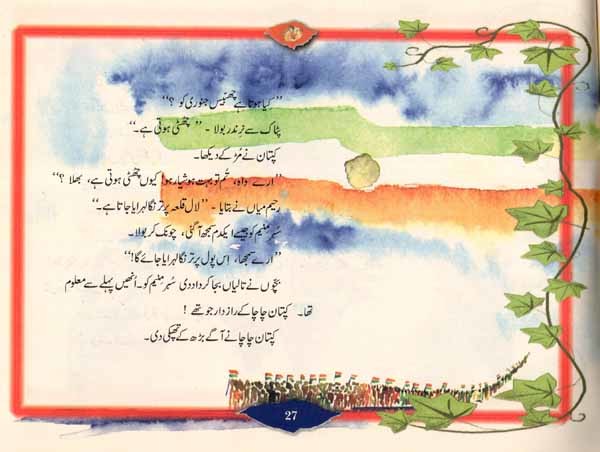 ۲۵
"کیا ہوتا ہے چھبّیس جنوری کو ؟"
پٹاک سے نرِندر بولا - "چھٹّی ہوتی ہے۔"
کپتان نے مُڑ کے دیکھا۔
"ارے واہ، تُم تو بہت ہوشیار ہو! کیوں چھٹّی ہوتی ہے، بھلا ؟"
رحیم میاں نے بتایا - "لال قلعہ پر ترنگا لہرایا جاتا ہے۔"
سُبرمنیم کو جیسے ایکدم سمجھ آ گئی، چونک کر بولا۔
"ارے سمجھا، اِس پول پر ترنگا لہرایا جائے گا!"
بچّوں نے تالیاں بجا کر داد دی سُبرمنیم کو۔ اُنھیں پہلے سے معلوم
تھا۔ کپتان چاچا کے رازدار جو تھے !
کپتان چاچا نے آگے بڑھ کے تھپکی دی۔
27